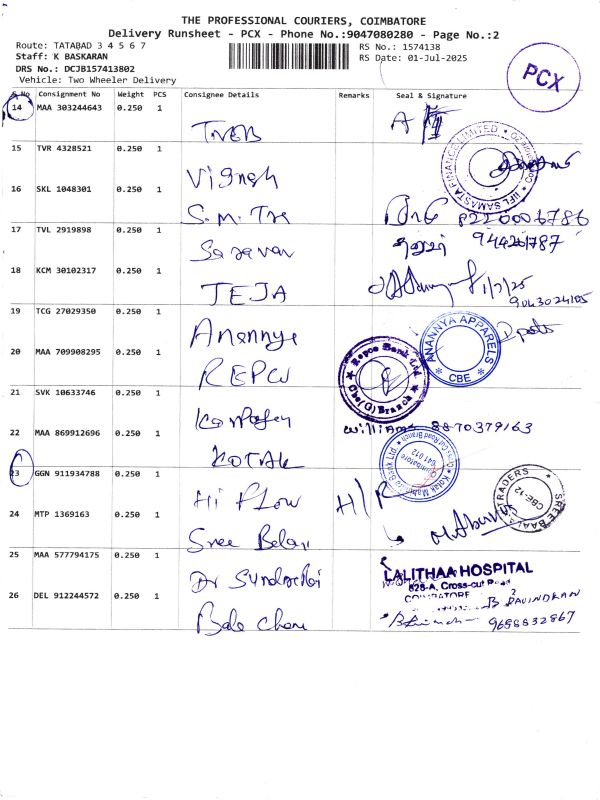 THE PROFESSIONAL COURIERS, COIMBATORE
Delivery Runsheet - PCX - Phone No.:9047080280 - Page No.:2
Route: TATABAD 3 4 5 6 7
RS No.: 1574138
Staff: K BASKARAN
RS Date: 01-Jul-2025
DRS No.: DCJB157413802
Vehicle: Two Wheeler Delivery
PCX
S.No Consignment No Weight PCS Consignee Details Remarks Seal & Signature
14 MAA 303244643 0.250 1
TNEB A
15 TVR 4328521 0.250 1
Vignesh
IIFL SAMASTA FINANCE LIMITED
16 SKL 1048301 0.250 1
S.M. 8220006786
17 TVL 2919898 0.250 1
Saravan
18 KCM 30102317 0.250 1
TEJA 1/7/25
9043024105
19 TCG 27029350 0.250 1
Anannya
ANANNYA APPARELS
CBE
20 MAA 709908295 0.250 1
REPCO
Repco Bank Ltd
Cbe(G) Branch
21 SVK 10633746 0.250 1
William 8870379163
22 MAA 869912696 0.250 1
KOTAK
Coimbatore
641 012
23 GGN 911934788 0.250 1
Hi Flow H/R
SREE BALAJI TRADERS
CBE-12
24 MTP 1369163 0.250 1
Sree Balaji
25 MAA 577794175 0.250 1
Dr
LALITHAA HOSPITAL
628-A, Cross-cut Road
COIMBATORE
26 DEL 912244572 0.250 1
Bala
B RAVINDRAN
9688832867